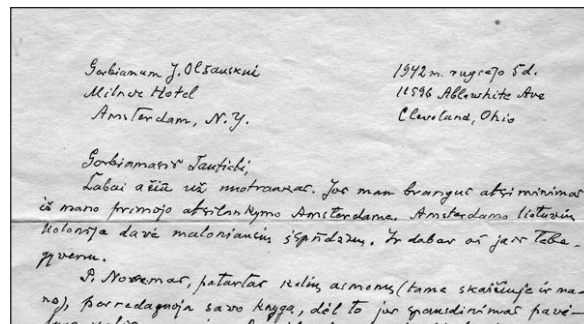 Gerbiamam J. Olšauskui 1942 m. rugsėjo 5 d.
Milner Hotel 11596 Ablewhite Ave
Amsterdam, N.Y. Cleveland, Ohio
Gerbiamasis Tautieti,
Labai ačiū už nuotraukas. Jos man brangus atsiminimas
iš mano pirmojo atsilankymo Amsterdame. Amsterdamo lietuvių
kolonija davė maloniausių įspūdžių. Ir dabar aš jais tebe-
gyvenu.
P. patartas kelių asmenų (tame skaičiuje ir ma-
no), perredaguoja savo knygą, dėl to jos spausdinimas pavė-